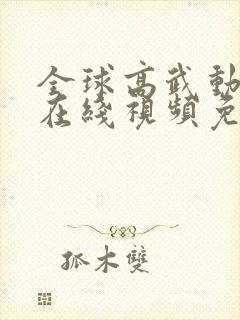 全球高武動
在綫視頻免
孤木雙